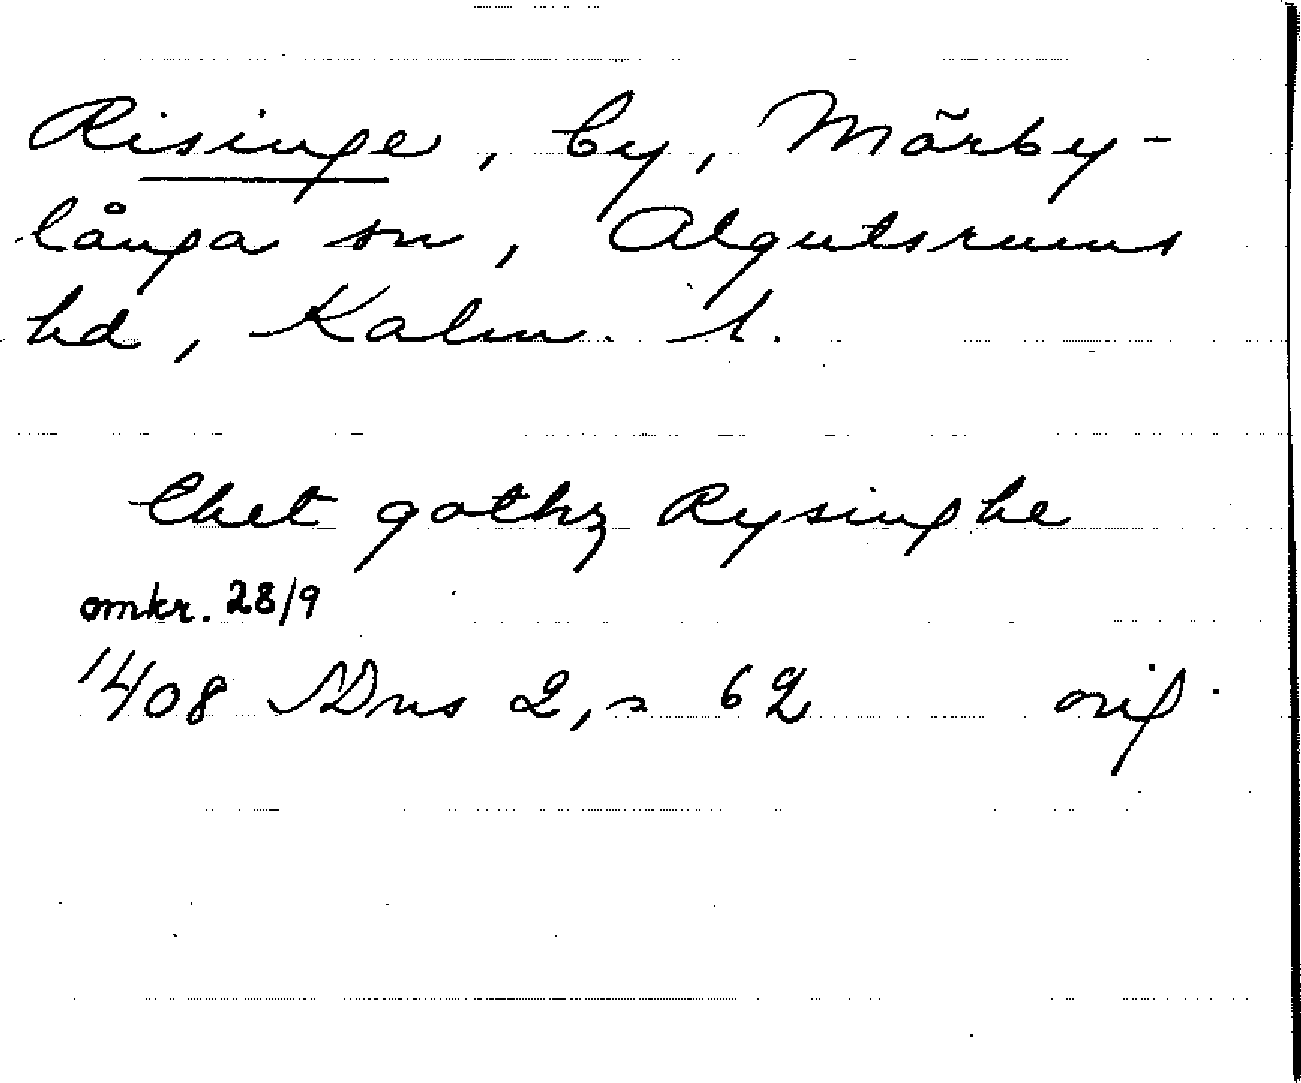 Risinge, by, Mörby-
långa sn, Algutsrums
hd, Kalm. l.
Ehet gothz Rysinghe
omkr. 28/9
1408 SDns 2, s 62 orig.